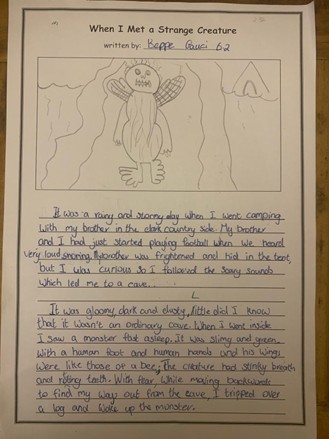 When I Met a Strange Creature
written by: Beppe Gauci 6.2
It was a rainy and stormy day when I went camping
with my brother in the dark country side. My brother
and I had just started playing football when we heard
very loud snoring. My brother was frightened and hid in the tent,
but I was curious so I followed the scary sounds
which led me to a cave.
It was gloomy, dark and dusty, little did I know
that it wasn't an ordinary cave. When I went inside
I saw a monster fast asleep. It was slimy and green.
With a human foot and human hands and his wings
were like those of a bee. The creature had stinky breath
and rotting teeth. With fear, while moving backwards
to find my way out from the cave, I tripped over
a log and woke up the monster.